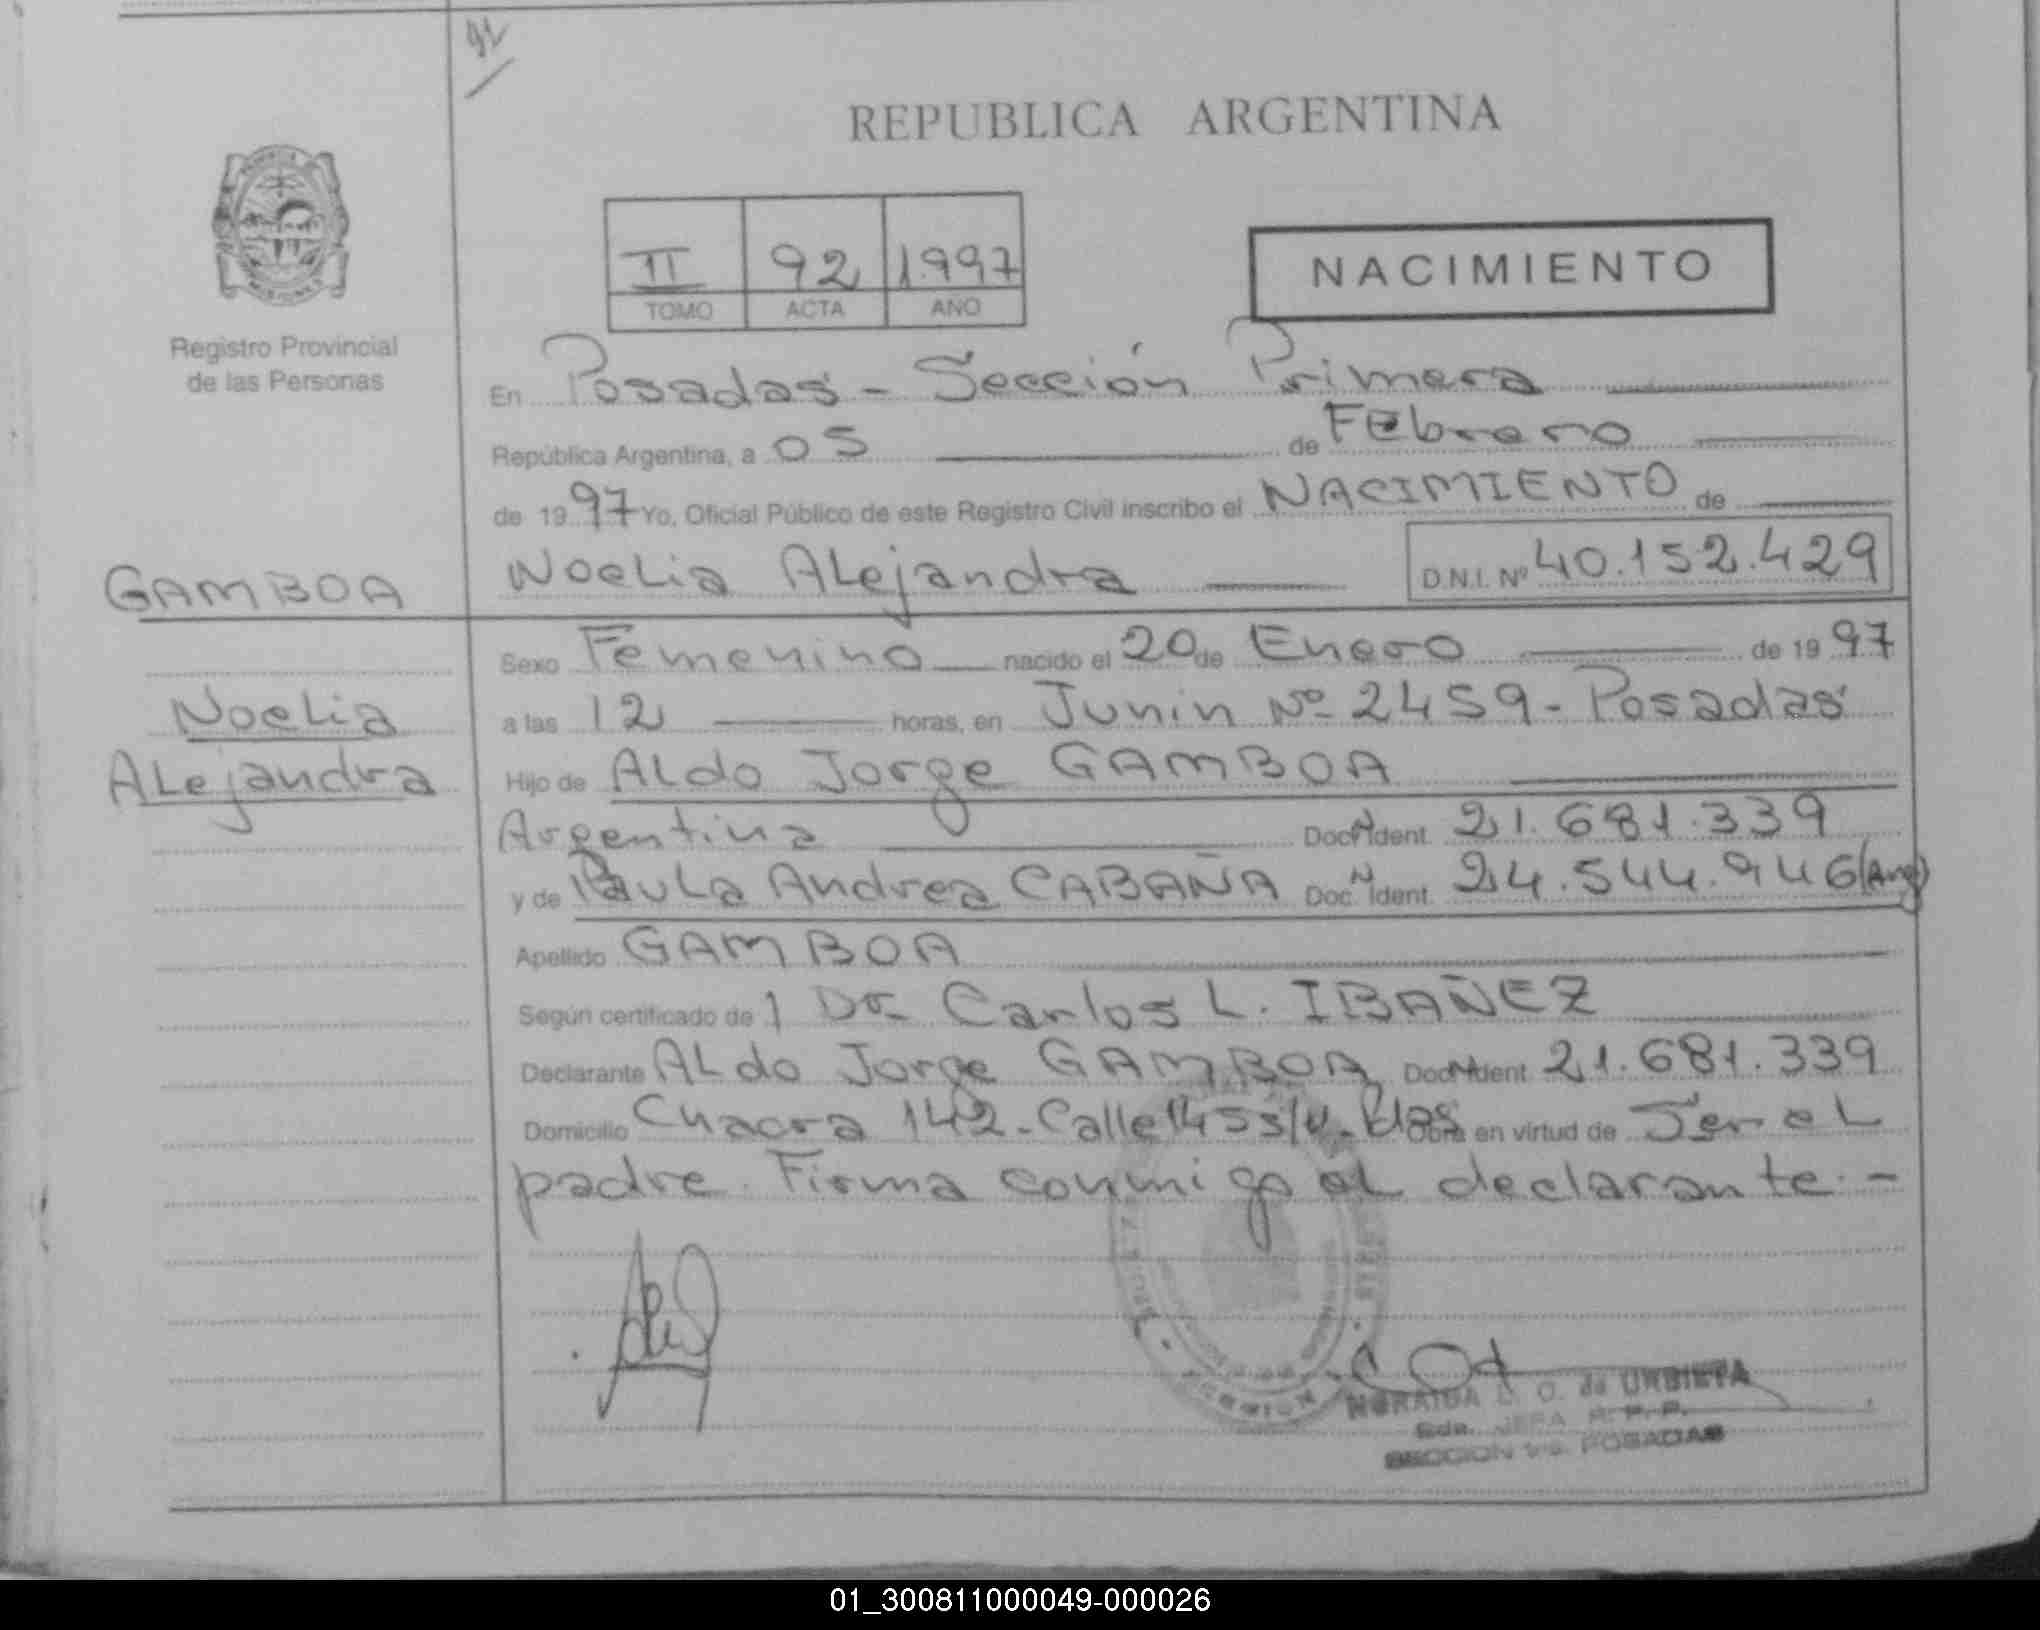 92
REPUBLICA ARGENTINA
II 92 1.997
TOMO ACTA AÑO
NACIMIENTO
Registro Provincial
de las Personas
En Posadas - Sección Primera
República Argentina, a 05 de FEbrero
de 1997 Yo, Oficial Público de este Registro Civil inscribo el NACIMIENTO de
GAMBOA
Noelia Alejandra D.N.I. Nº 40.152.429
Sexo Femenino nacido el 20 de Enero de 1997
Noelia
a las 12 horas, en Junin Nº 2459 - Posadas
Alejandra
Hijo de Aldo Jorge GAMBOA
Argentina Doc. N Ident. 21.681.339
y de Paula Andrea CABAÑA Doc. N Ident. 24.544.946 (Arg)
Apellido GAMBOA
Según certificado de 1 Dr. Carlos L. IBAÑEZ
Declarante Aldo Jorge GAMBOA Doc. N Ident. 21.681.339
Domicilio Chacra 142 - Calle 145 s/n - Pdas Obra en virtud de Ser el
padre. Firma conmigo el declarante. -
de URBIETA
JEFA R. P. P.
SECCION 1ra. POSADAS
01_300811000049-000026